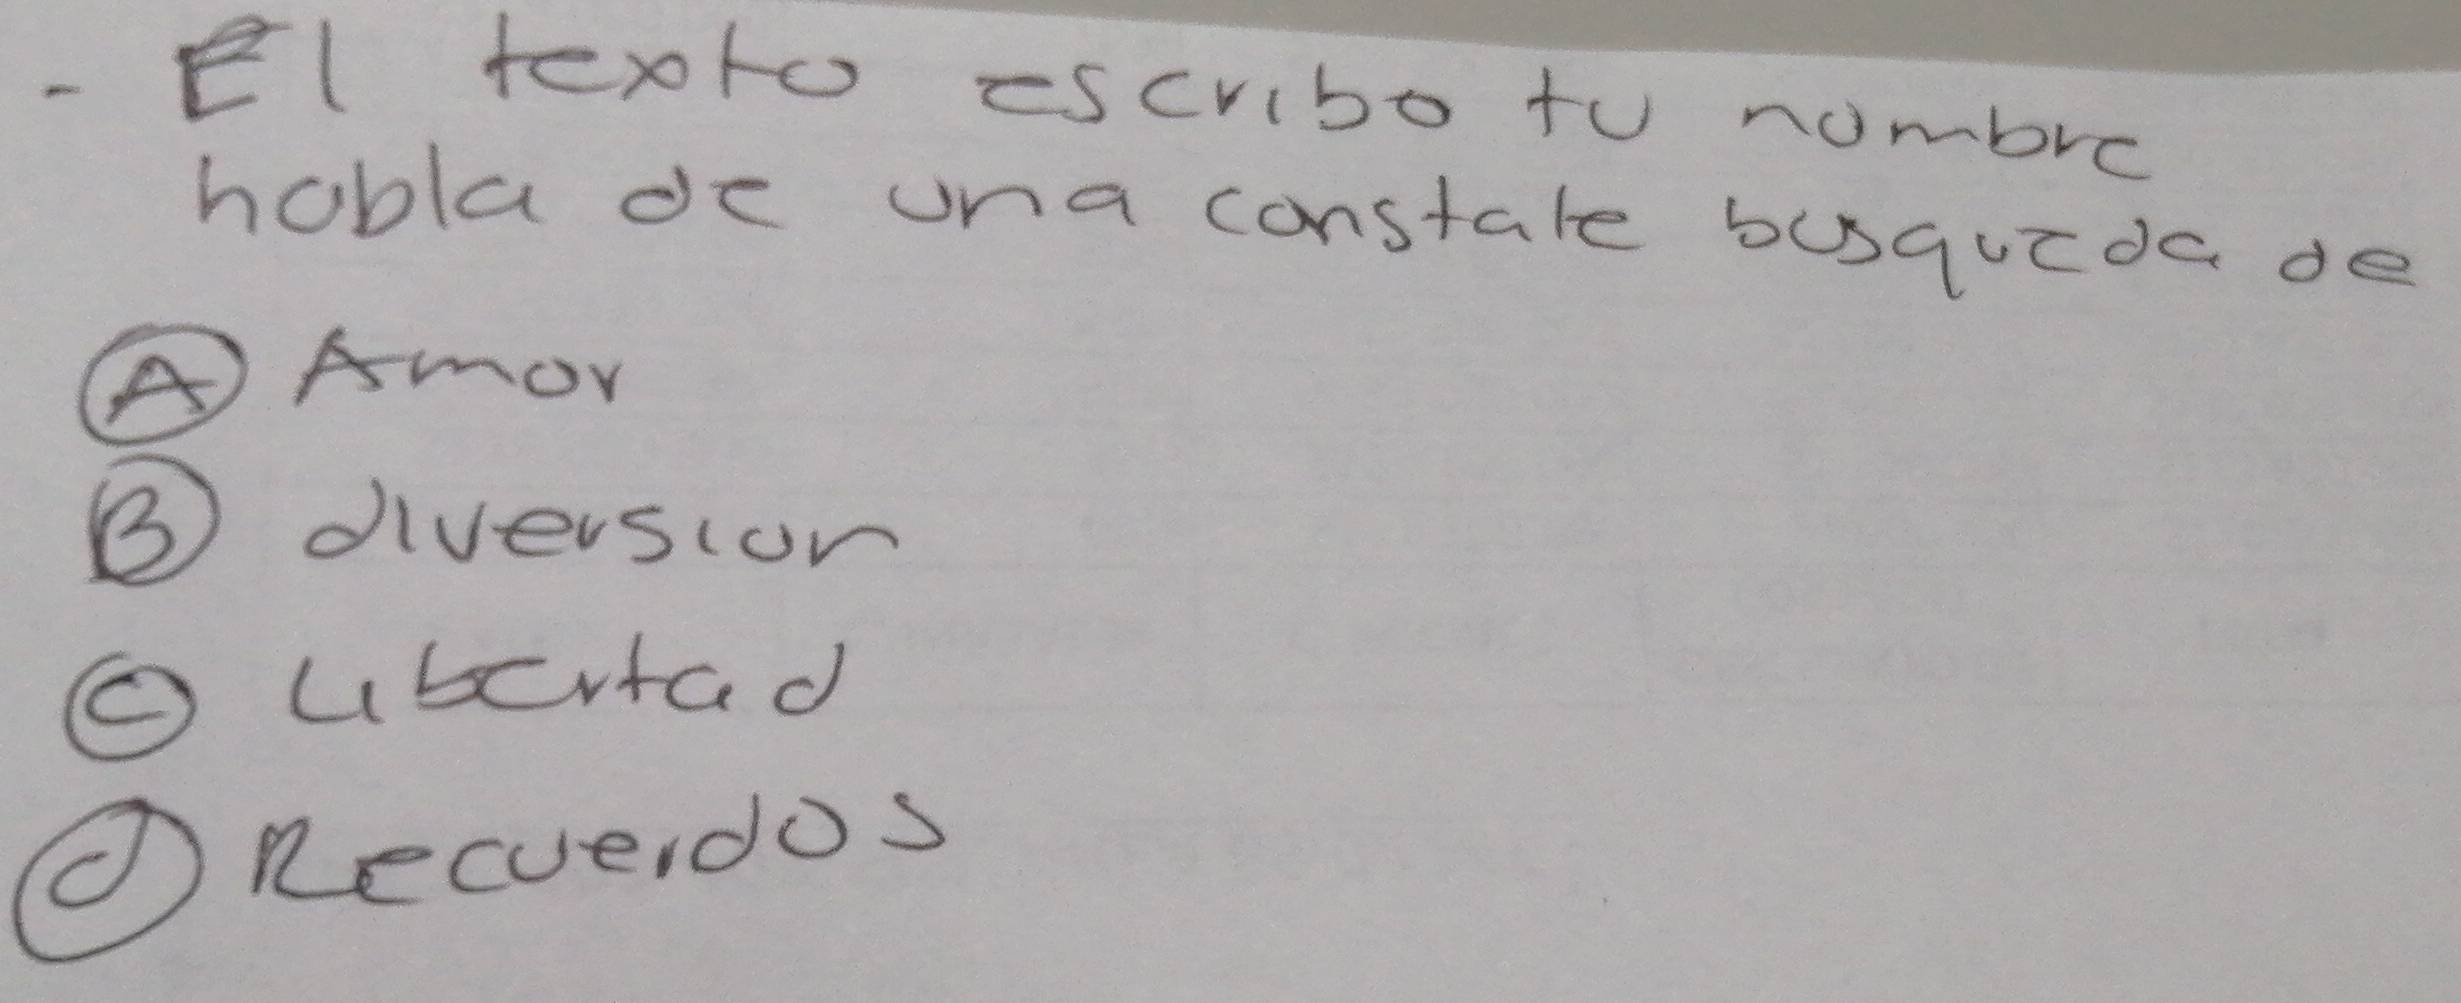 - El texto escribo tu nombre
habla de una constate busqueda de
A Amor
B diversion
C Libertad
d Recuerdos